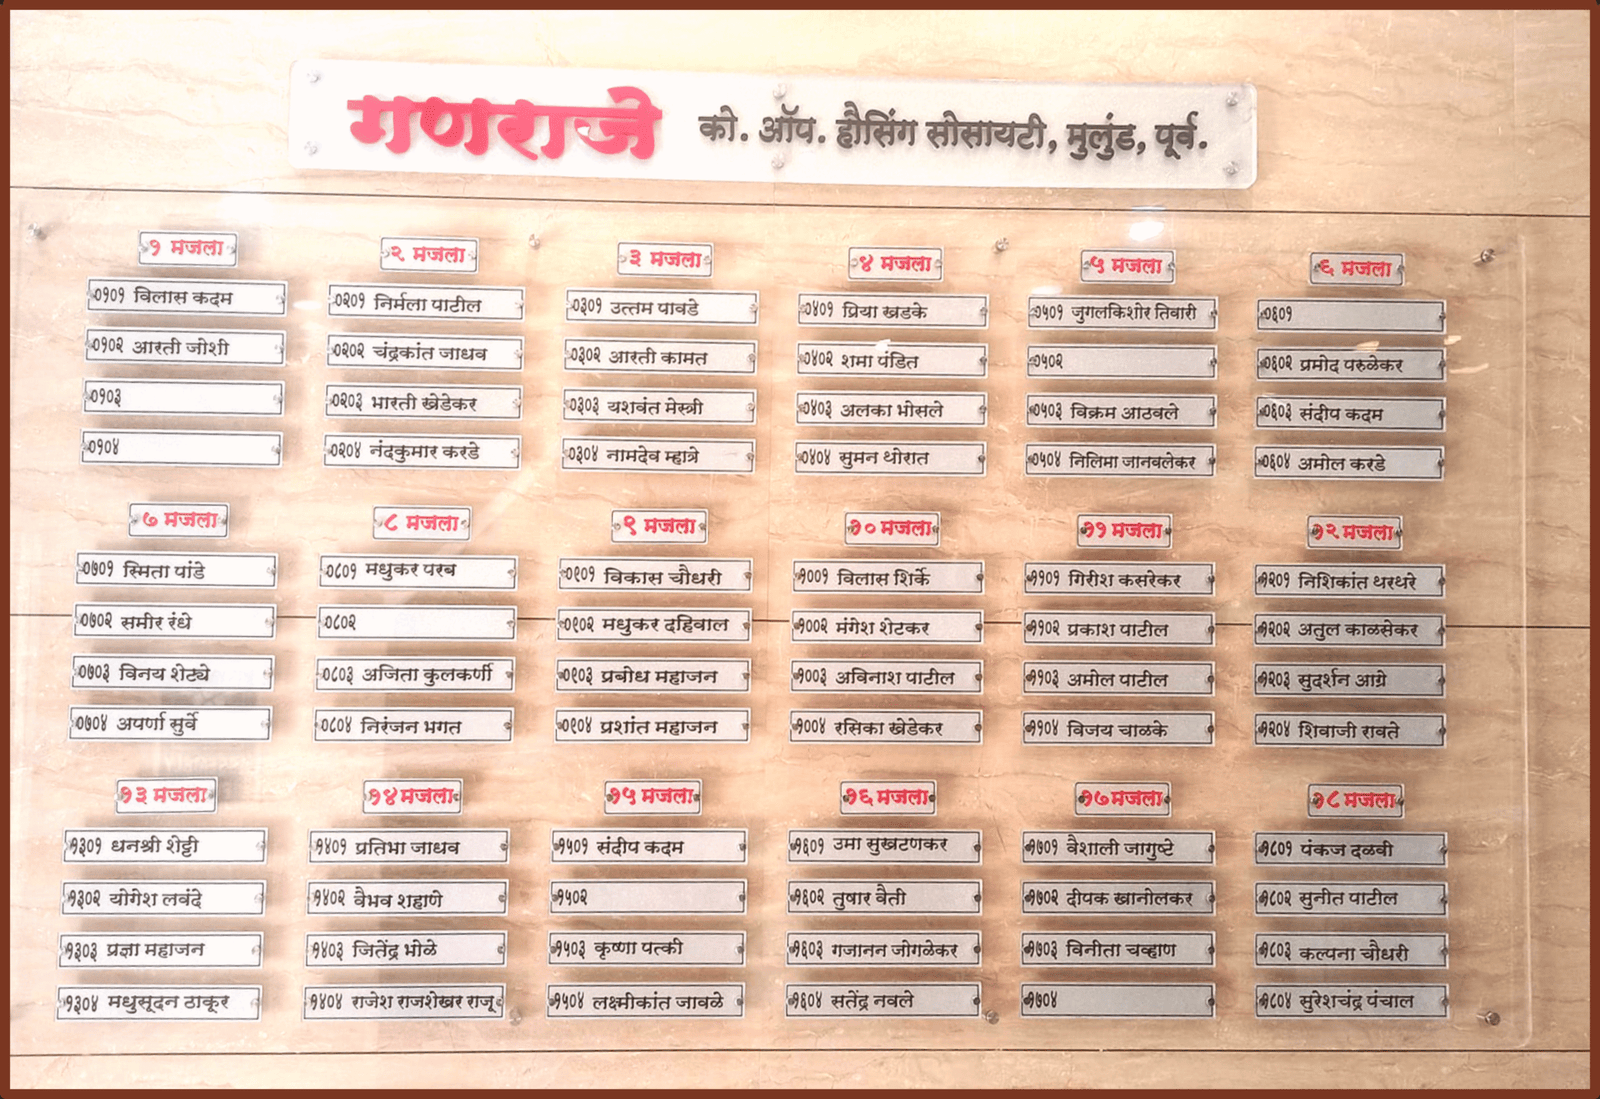 गणराजे को. ऑप. हौसिंग सोसायटी, मुलुंड, पूर्व.
१ मजला
०१०१ विलास कदम
०१०२ आरती जोशी
०१०३
०१०४
२ मजला
०२०१ निर्मला पाटील
०२०२ चंद्रकांत जाधव
०२०३ भारती खेडेकर
०२०४ नंदकुमार करडे
३ मजला
०३०१ उत्तम पावडे
०३०२ आरती कामत
०३०३ यशवंत मेस्त्री
०३०४ नामदेव म्हात्रे
४ मजला
०४०१ प्रिया खडके
०४०२ शमा पंडित
०४०३ अलका भोसले
०४०४ सुमन थोरात
५ मजला
०५०१ जुगलकिशोर तिवारी
०५०२
०५०३ विक्रम आठवले
०५०४ निलिमा जानवलेकर
६ मजला
०६०१
०६०२ प्रमोद परुळेकर
०६०३ संदीप कदम
०६०४ अमोल करडे
७ मजला
०७०१ स्मिता पांडे
०७०२ समीर रंधे
०७०३ विनय शेट्ये
०७०४ अपर्णा सुर्वे
८ मजला
०८०१ मधुकर परब
०८०२
०८०३ अजिता कुलकर्णी
०८०४ निरंजन भगत
९ मजला
०९०१ विकास चौधरी
०९०२ मधुकर दहिवाल
०९०३ प्रबोध महाजन
०९०४ प्रशांत महाजन
१० मजला
१००१ विलास शिर्के
१००२ मंगेश शेटकर
१००३ अविनाश पाटील
१००४ रसिका खेडेकर
११ मजला
११०१ गिरीश कसरेकर
११०२ प्रकाश पाटील
११०३ अमोल पाटील
११०४ विजय चाळके
१२ मजला
१२०१ निशिकांत थरथरे
१२०२ अतुल काळसेकर
१२०३ सुदर्शन आग्रे
१२०४ शिवाजी रावते
१३ मजला
१३०१ धनश्री शेट्टी
१३०२ योगेश लवंदे
१३०३ प्रज्ञा महाजन
१३०४ मधुसूदन ठाकूर
१४ मजला
१४०१ प्रतिभा जाधव
१४०२ वैभव शहाणे
१४०३ जितेंद्र भोळे
१४०४ राजेश राजशेखर राजू
१५ मजला
१५०१ संदीप कदम
१५०२
१५०३ कृष्णा पत्की
१५०४ लक्ष्मीकांत जावळे
१६ मजला
१६०१ उमा सुखटणकर
१६०२ तुषार वैती
१६०३ गजानन जोगळेकर
१६०४ सतेंद्र नवले
१७ मजला
१७०१ वैशाली जागुष्टे
१७०२ दीपक खानोलकर
१७०३ विनीता चव्हाण
१७०४
१८ मजला
१८०१ पंकज दळवी
१८०२ सुनीत पाटील
१८०३ कल्पना चौधरी
१८०४ सुरेशचंद्र पंचाल